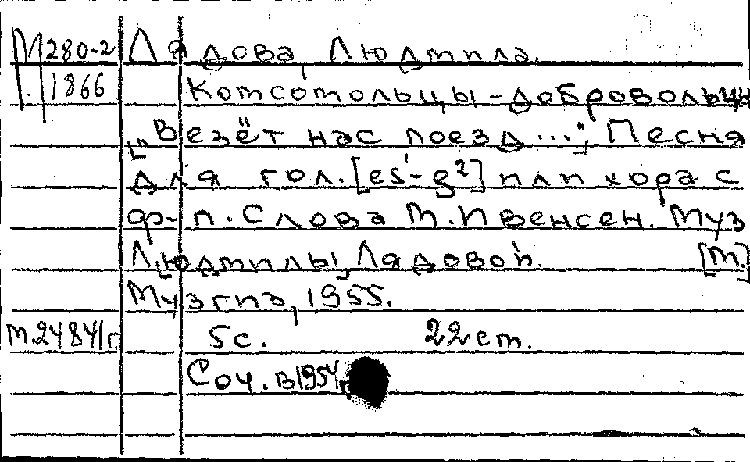 М280-2 Лядова, Людмила.
1866 Комсомольцы-добровольцы
„Везёт нас поезд...“; Песня
для гол. [es'-g²] или хора с
ф-п. Слова М. Ивенсен. Муз
Людмилы Лядовой. [М.]
Музгиз, 1955.
м.24841г 5с. 22см.
Соч. в 1954г.